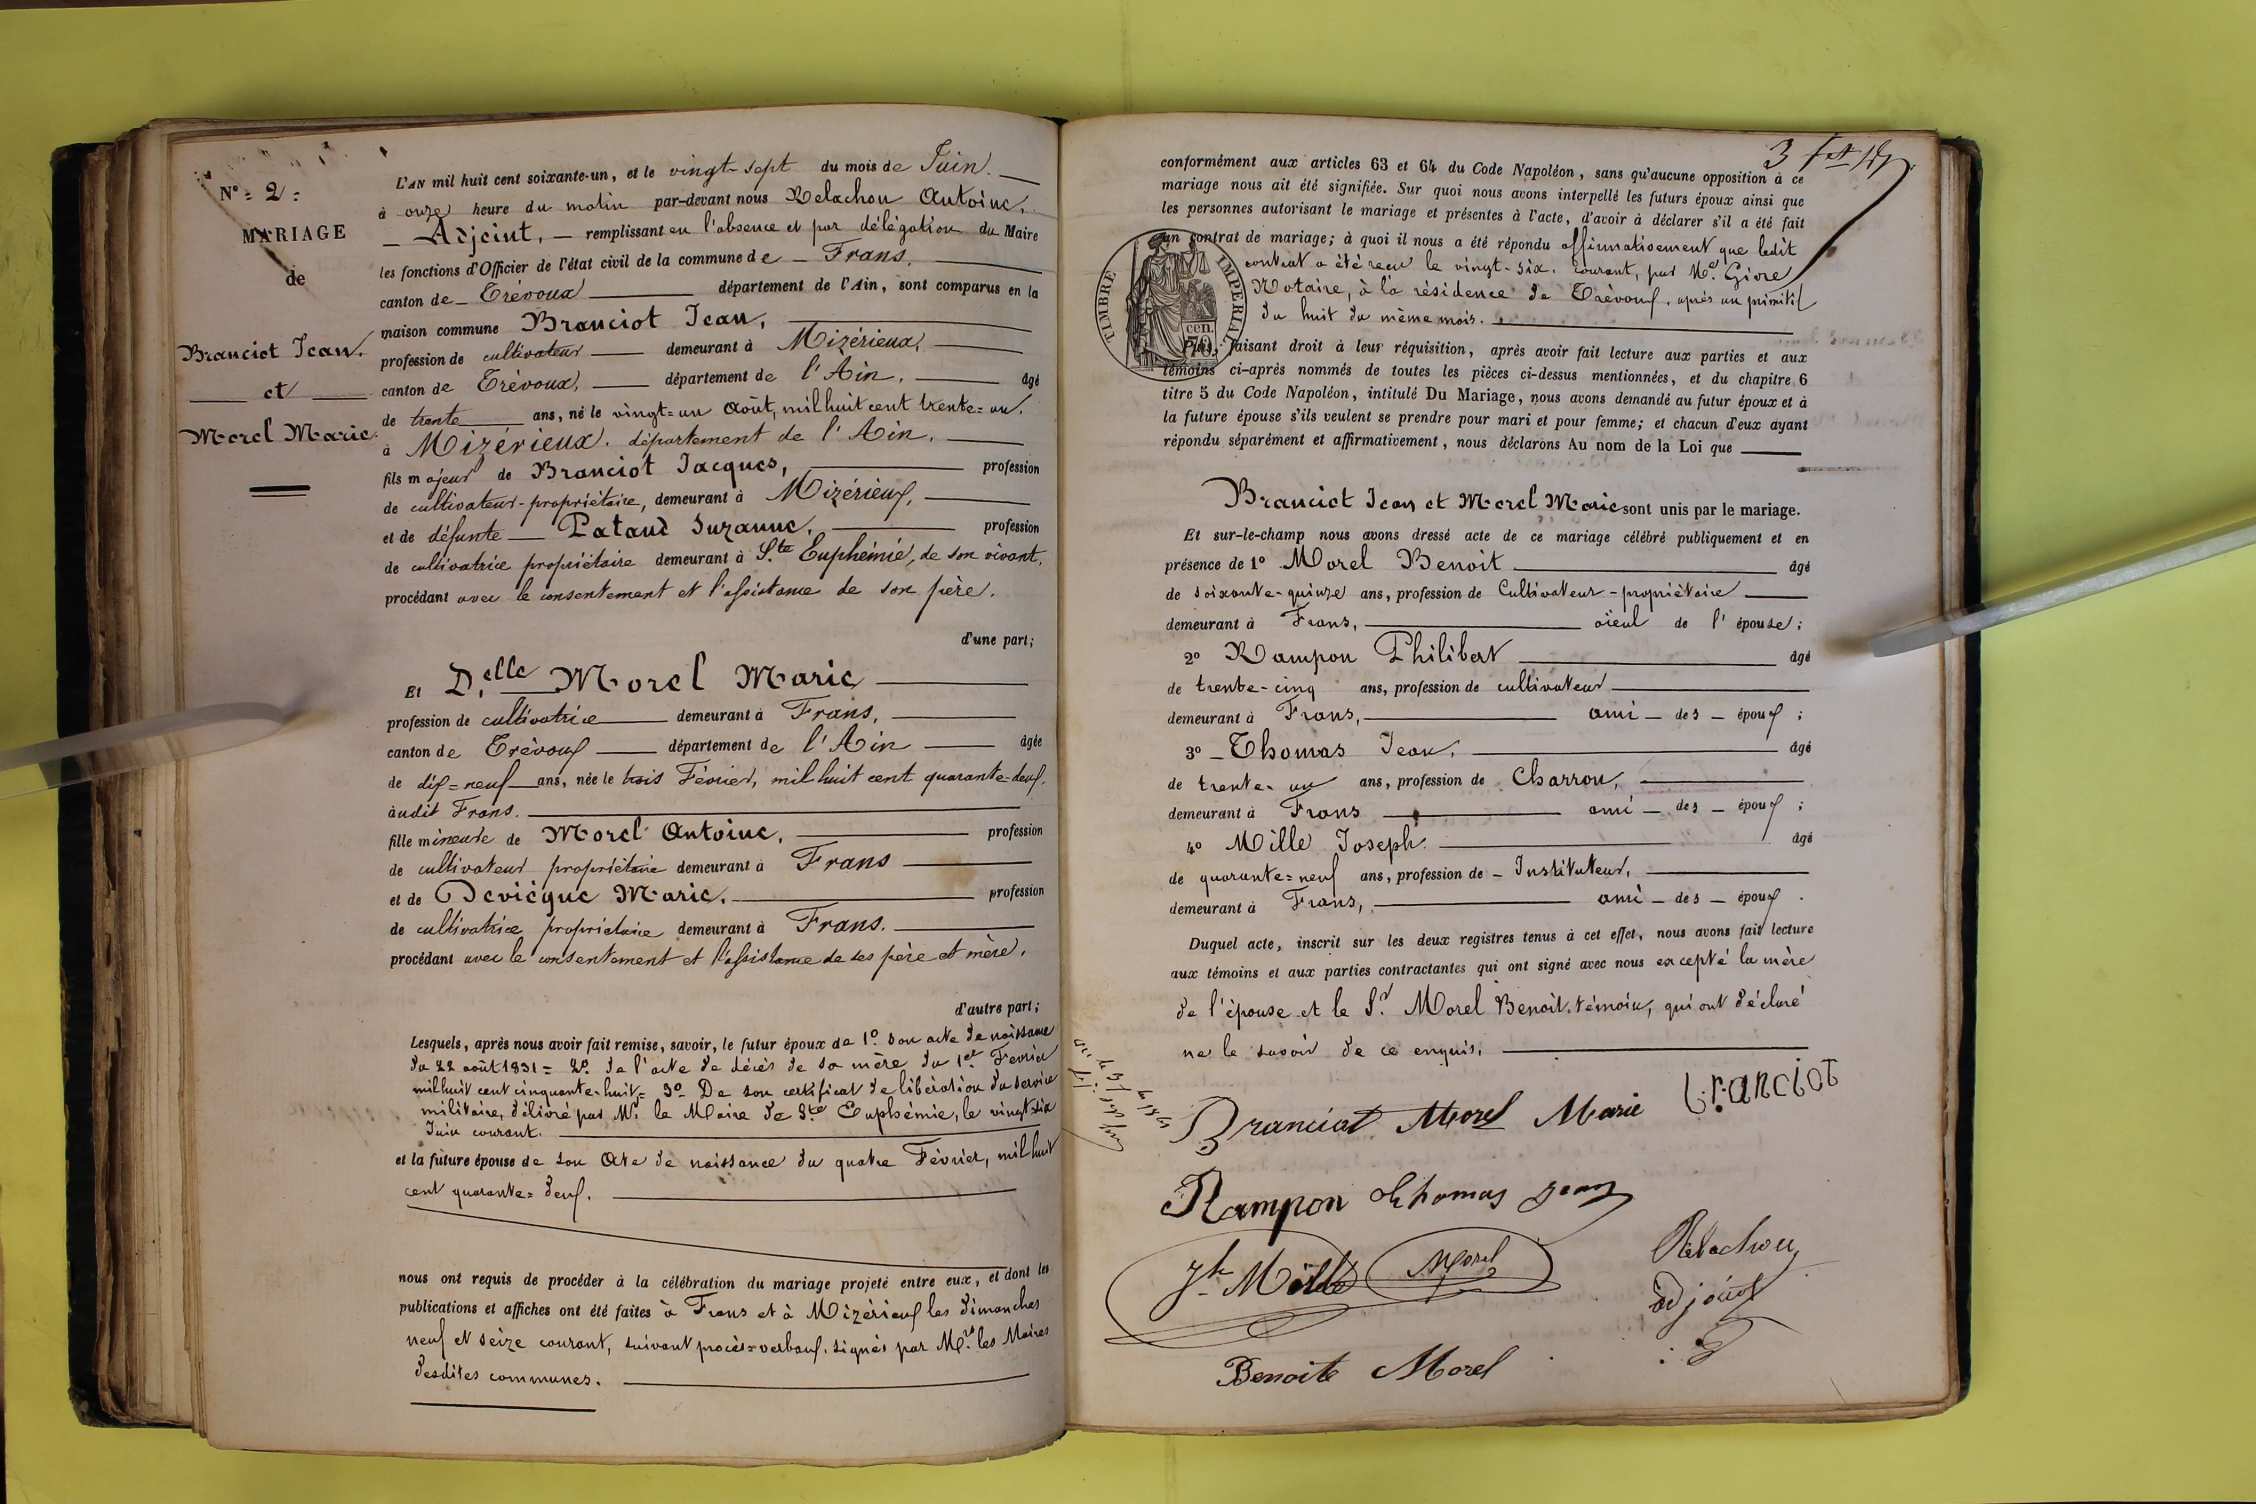 N° = 2 =
MARIAGE
de
Branciot Jean.
et
Morel Marie.
L'AN mil huit cent soixante-un, et le vingt-sept du mois de Juin.
à onze heure du matin par-devant nous Relachon Antoine,
Adjoint, remplissant en l'absence et par délégation du Maire
les fonctions d'Officier de l'état civil de la commune de Frans.
canton de Trévoux département de l'Ain, sont comparus en la
maison commune Branciot Jean,
profession de cultivateur demeurant à Mizérieux,
canton de Trévoux, département de l'Ain, âgé
de trente ans, né le vingt=un Août, mil huit cent trente=un.
à Mizérieux. département de l'Ain.
fils majeur de Branciot Jacques, profession
de cultivateur-propriétaire, demeurant à Mizérieux,
et de défunte Pataud Suzanne, profession
de cultivatrice propriétaire demeurant à Ste Euphémie, de son vivant,
procédant avec le consentement et l'assistance de son père.
d'une part;
Et Delle Morel Marie
profession de cultivatrice demeurant à Frans,
canton de Trévoux département de l'Ain âgée
de dix=neuf ans, née le trois Février, mil huit cent quarante-deux.
àudit Frans.
fille mineure de Morel Antoine, profession
de cultivateur propriétaire demeurant à Frans
et de Devièque Marie, profession
de cultivatrice propriétaire demeurant à Frans.
procédant avec le consentement et l'assistance de ses père et mère,
d'autre part;
Lesquels, après nous avoir fait remise, savoir, le futur époux de 1° son acte de naissance
du 22 août 1831 = 2° de l'acte de décès de sa mère du 1er Février
mil huit cent cinquante-huit = 3° De son certificat de libération du service
militaire, délivré par Mr le Maire de Ste Euphémie, le vingt-six
Juin courant.
et la future épouse de son Acte de naissance du quatre Février, mil huit
cent quarante=deux.
nous ont requis de procéder à la célébration du mariage projeté entre eux, et dont les
publications et affiches ont été faites à Frans et à Mizérieux les dimanches
neuf et seize courant, suivant procès=verbaux, signés par Mrs les Maires
desdites communes.
3
conformément aux articles 63 et 64 du Code Napoléon, sans qu'aucune opposition à ce
mariage nous ait été signifiée. Sur quoi nous avons interpellé les futurs époux ainsi que
les personnes autorisant le mariage et présentes à l'acte, d'avoir à déclarer s'il a été fait
un contrat de mariage; à quoi il nous a été répondu affirmativement que ledit
contrat a été reçu le vingt-six courant, par Me Giore
Notaire, à la résidence de Trévoux, après un primitif
du huit du même mois.
TIMBRE IMPERIAL
70 cen.
Puis, faisant droit à leur réquisition, après avoir fait lecture aux parties et aux
témoins ci-après nommés de toutes les pièces ci-dessus mentionnées, et du chapitre 6
titre 5 du Code Napoléon, intitulé Du Mariage, nous avons demandé au futur époux et à
la future épouse s'ils veulent se prendre pour mari et pour femme; et chacun d'eux ayant
répondu séparément et affirmativement, nous déclarons Au nom de la Loi que
Branciot Jean et Morel Marie sont unis par le mariage.
Et sur-le-champ nous avons dressé acte de ce mariage célébré publiquement et en
présence de 1° Morel Benoit âgé
de soixante-quinze ans, profession de Cultivateur-propriétaire
demeurant à Frans, aïeul de l'épouse;
2° Rampon Philibert âgé
de trente-cinq ans, profession de cultivateur
demeurant à Frans, ami des époux;
3° Thomas Jean, âgé
de trente-un ans, profession de Charron,
demeurant à Frans ami des époux;
4° Mille Joseph. âgé
de quarante=neuf ans, profession de Instituteur,
demeurant à Frans, ami des époux.
Duquel acte, inscrit sur les deux registres tenus à cet effet, nous avons fait lecture
aux témoins et aux parties contractantes qui ont signé avec nous excepté la mère
de l'épouse et le Sr Morel Benoit témoin, qui ont déclaré
ne le savoir de ce enquis.
Branciot Morel Marie Branciot
Rampon Thomas Jean
Jh Mille Morel Relachon
adjoint
Benoite Morel